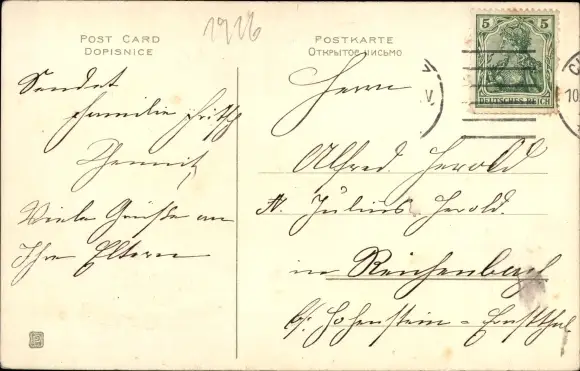 1916
POST CARD
DOPISNICE
POSTKARTE
Открытое письмо
5 5
DEUTSCHES REICH
V.
10
Sendet
Familie Fritsch
Chemnitz
Viele Grüße an
Ihre Eltern
Herrn
Alfred Herold
Julius Herold.
in Reichenbach
b/ Hohenstein = Ernstthal